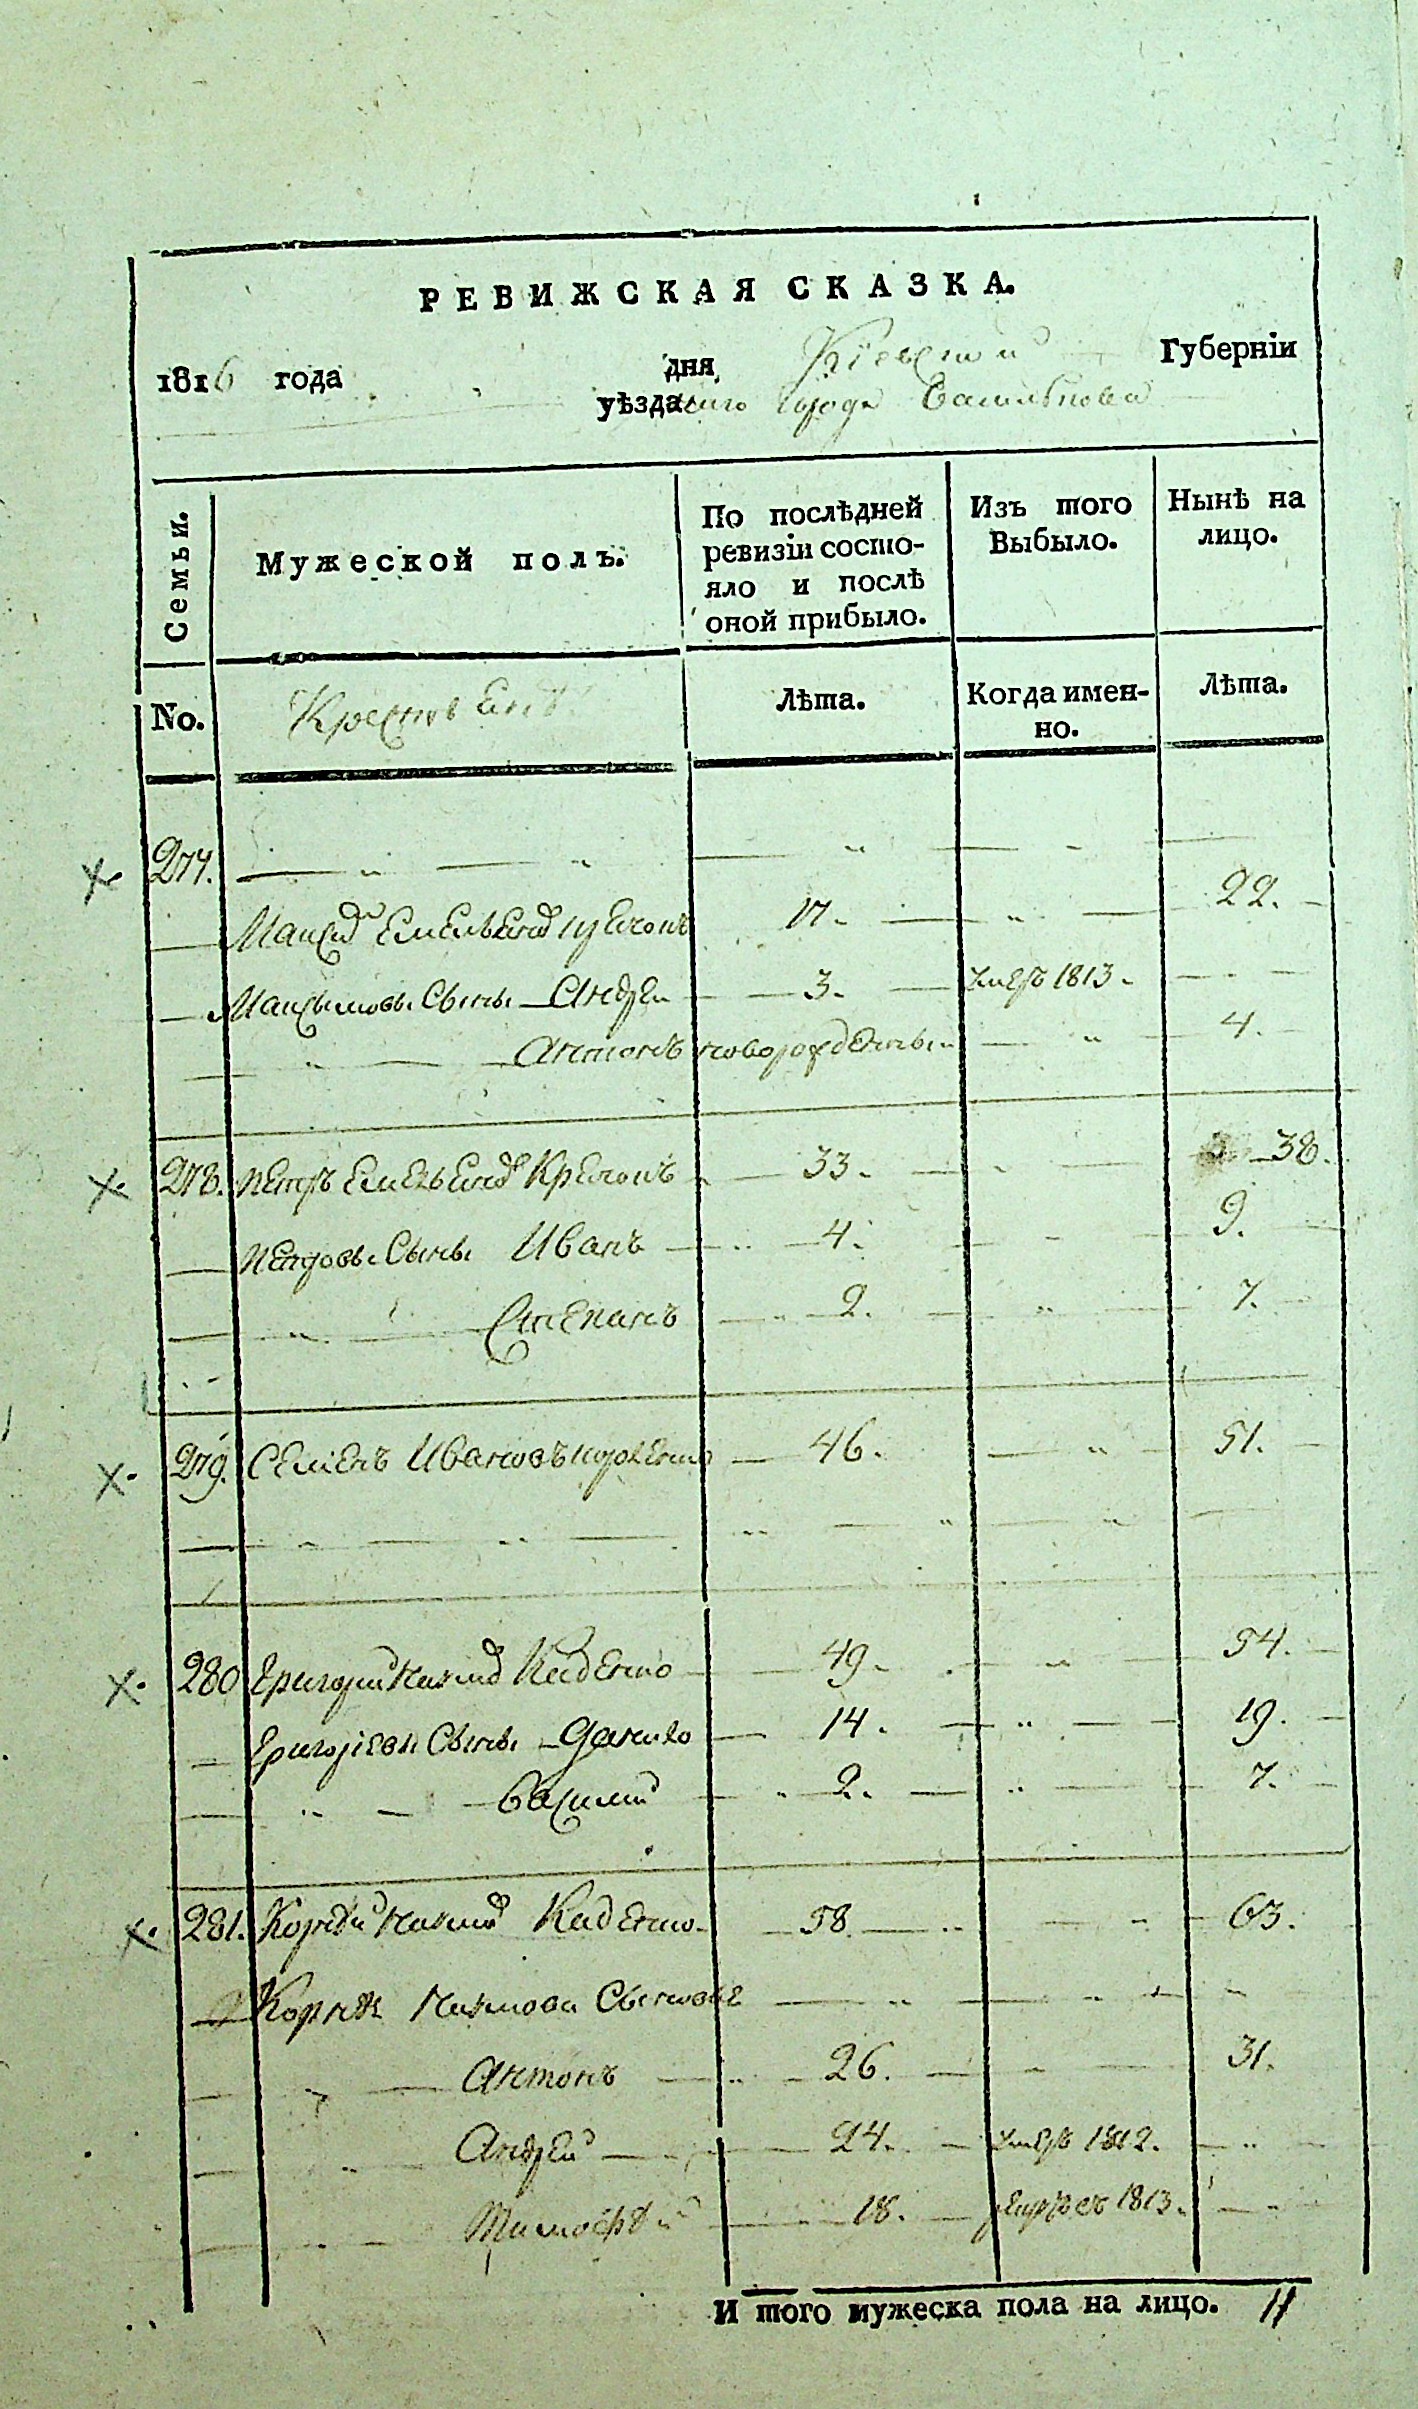 РЕВИЖСКАЯ СКАЗКА.
1816 года дня Кіевской Губерніи
уѣзда города Василькова
Семьи. Мужеской полъ. По послѣдней ревизіи состояло и послѣ оной прибыло. Изъ того Выбыло. Нынѣ на лицо.
No. Крестьянъ Лѣта. Когда именно. Лѣта.
277.
Максимъ Емельяновъ 17. 22.
Максимовы Сыны Андрей 3. умеръ 1813.
Антонъ новорожденный 4.
278. Петръ Емельяновъ 33. 38.
Петровы Сыны Иванъ 4. 9.
Степанъ 2. 7.
279. Семенъ Ивановъ 46. 51.
280 Григорій Наумовъ 49. 54.
Григоріевы Сыны Данило 14. 19.
Василій 2. 7.
281. Корнѣй Наумовъ 58 63.
Корнѣя Наумова Сыновья
Антонъ 26. 31.
Андрей 24. умеръ 1812.
Тимофѣй 18. рекрутъ 1813.
И того мужеска пола на лицо. 11